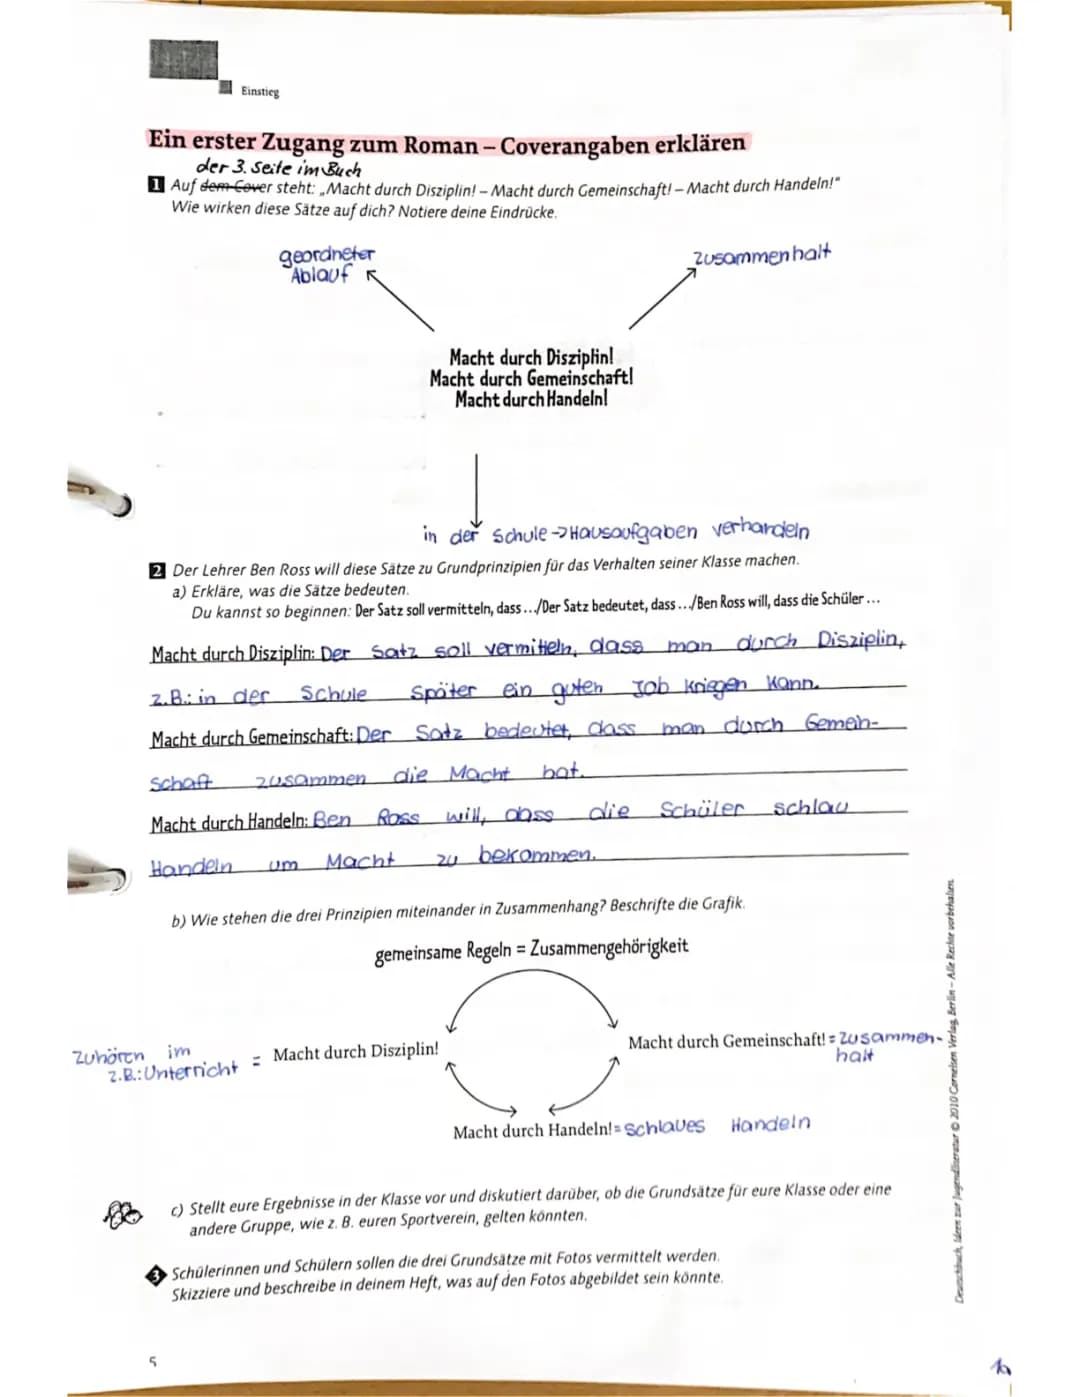 Einstieg
Ein erster Zugang zum Roman – Coverangaben erklären
der 3. Seite im Buch
1 Auf dem Cover steht: „Macht durch Disziplin! – Macht durch Gemeinschaft! – Macht durch Handeln!"
Wie wirken diese Sätze auf dich? Notiere deine Eindrücke.
geordneter
Ablauf
Zusammenhalt
Macht durch Disziplin!
Macht durch Gemeinschaft!
Macht durch Handeln!
in der Schule -> Hausaufgaben verhandeln
2 Der Lehrer Ben Ross will diese Sätze zu Grundprinzipien für das Verhalten seiner Klasse machen.
a) Erkläre, was die Sätze bedeuten.
Du kannst so beginnen: Der Satz soll vermitteln, dass .../Der Satz bedeutet, dass .../Ben Ross will, dass die Schüler ...
Macht durch Disziplin: Der Satz soll vermitteln, dass man durch Disziplin,
z.B.: in der Schule Später ein guten Job kriegen kann.
Macht durch Gemeinschaft: Der Satz bedeutet, dass man durch Gemein-
schaft zusammen die Macht hat.
Macht durch Handeln: Ben Ross will, dass die Schüler schlau
Handeln um Macht zu bekommen.
b) Wie stehen die drei Prinzipien miteinander in Zusammenhang? Beschrifte die Grafik.
gemeinsame Regeln = Zusammengehörigkeit
Zuhören im
z.B.: Unterricht = Macht durch Disziplin!
Macht durch Gemeinschaft! = Zusammen-
halt
Macht durch Handeln! = Schlaues Handeln
c) Stellt eure Ergebnisse in der Klasse vor und diskutiert darüber, ob die Grundsätze für eure Klasse oder eine
andere Gruppe, wie z. B. euren Sportverein, gelten könnten.
3 Schülerinnen und Schülern sollen die drei Grundsätze mit Fotos vermittelt werden.
Skizziere und beschreibe in deinem Heft, was auf den Fotos abgebildet sein könnte.
Deutschbuch, Ideen zur Jugendliteratur © 2010 Cornelsen Verlag, Berlin – Alle Rechte vorbehalten.
5